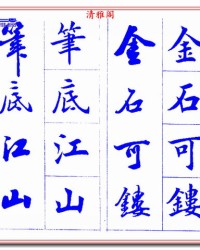 清雅阁
金石可鏤
金石可鏤
筆底江山
筆底江山